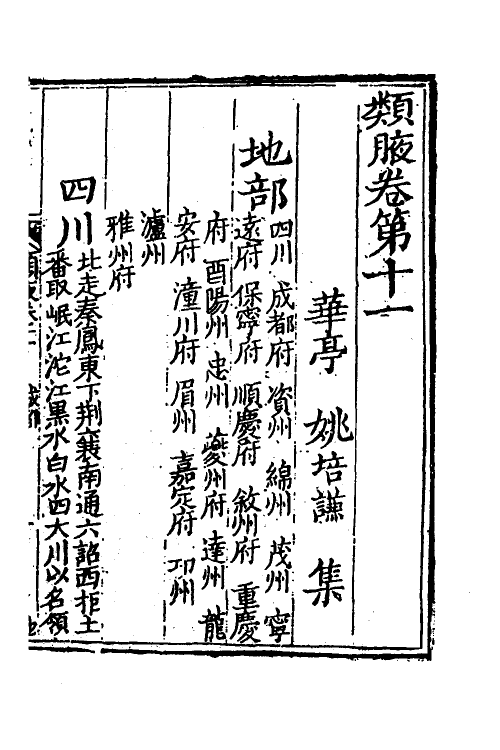 類腋卷第十一
華亭 姚培謙 集
地部
四川 成都府 資州 綿州 茂州 寧
遠府 保寧府 順慶府 敘州府 重慶
府 酉陽州 忠州 夔州府 達州 龍
安府 潼川府 眉州 嘉定府 邛州
瀘州
雅州府
四川
北走秦鳳東下荆襄南通六詔西拒土
番取岷江沱江黒水白水四大川以名領